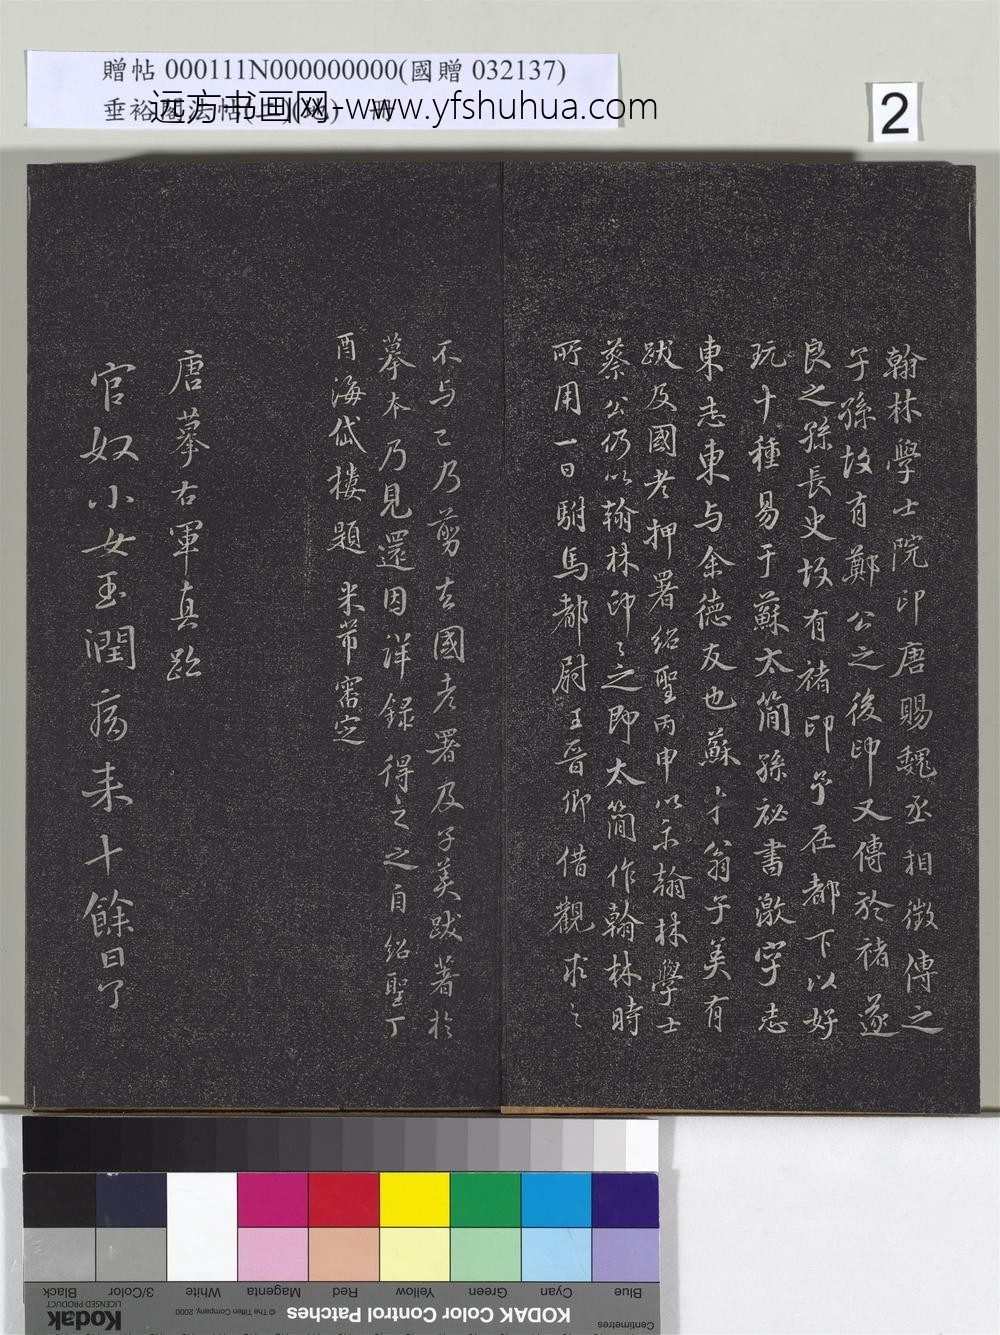 贈帖 000111N000000000(國贈 032137)
远方书画网-www.yfshuhua.com
2
翰林學士院印唐賜魏丞相徵傳之
子孫故有鄭公之後印又傳於褚遂
良之孫長史故有褚印予在都下以好
玩十種易于蘇太簡孫祕書激字志
東志東与余德友也蘇才翁子美有
跋及國老押署紹聖丙申以示翰林學士
蔡公仍以翰林印印之即太簡作翰林時
所用一日駙馬都尉王晉卿借觀求之
不与已乃剪去國老署及子美跋著於
摹本乃見還因詳錄得之之自紹聖丁
酉海岱樓題 米芾審定
唐摹右軍真跡
官奴小女玉潤病来十餘日了
KODAK Color Control Patches
© The Tiffen Company, 2000
Kodak
LICENSED PRODUCT
Centimetres
Blue
Cyan
Green
Yellow
Red
Magenta
White
3/Color
Black